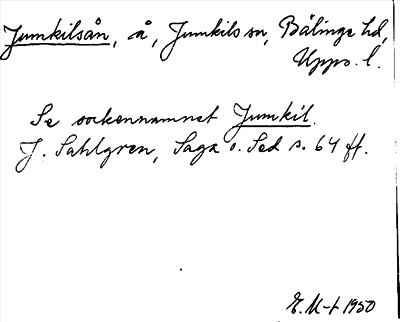 Jumkilsån, å, Jumkils sn, Bälinge hd,
Upps. l.
Se sockennamnet Jumkil.
J. Sahlgren, Saga o. Sed s. 64 ff.
E. M-t 1950